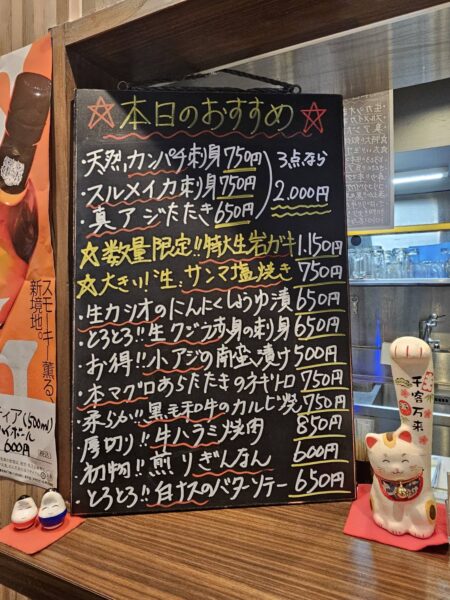 ☆本日のおすすめ☆
・天然カンパチ刺身 750円
・スルメイカ刺身 750円
・真アジたたき 650円
3点なら
2.000円
☆数量限定!!特大生岩ガキ 1.150円
☆大きい!!生サンマ塩焼き 750円
・生カツオのにんにくしょうゆ漬 650円
・とろとろ!!生クジラ赤身の刺身 650円
・お得!!小アジの南蛮漬け 500円
・本マグロあらたたきのネギトロ 750円
・柔らかい!!黒毛和牛のカルビ焼 750円
・厚切り!!生ハラミ焼肉 850円
・初物!!煎りぎんなん 600円
・とろとろ!!白ナスのバターソテー 650円
スモーキー薫る、
新境地。
ティア(500ml)
ハイボール
000円
千客万来